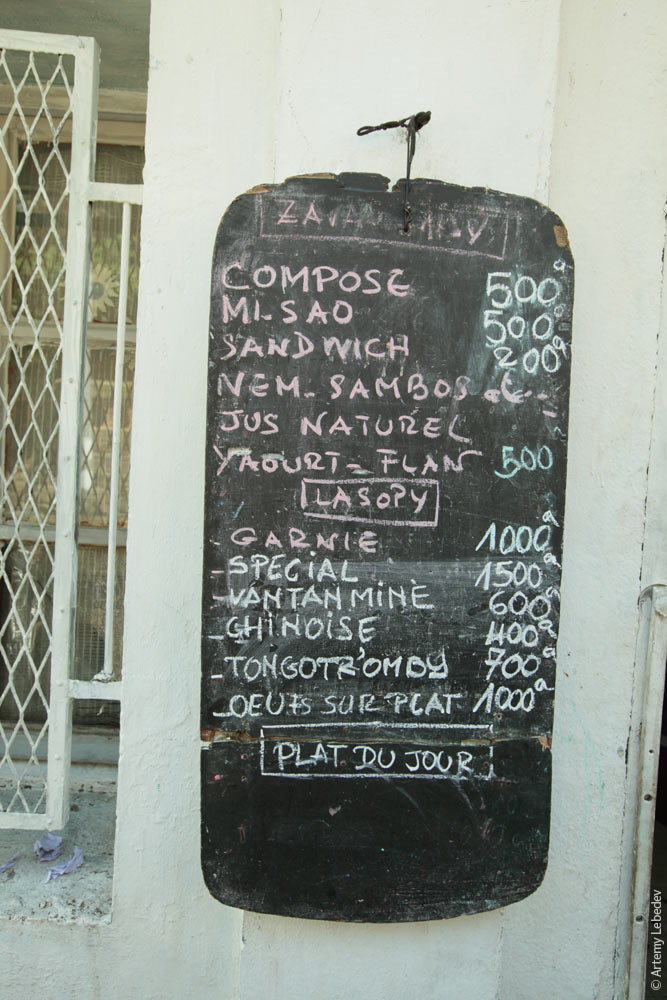 COMPOSE 500a
MI-SAO 500a
SANDWICH 200a
NEM - SAMBOS
JUS NATUREL
YAOURT = FLAN 500
LASOPY
- GARNIE 1000a
- SPECIAL 1500a
- VANTAN MINÈ 600a
- CHINOISE 400a
- TONGOTR'OMBY 700a
- OEUfs SUR PLAT 1000a
PLAT DU JOUR
© Artemy Lebedev